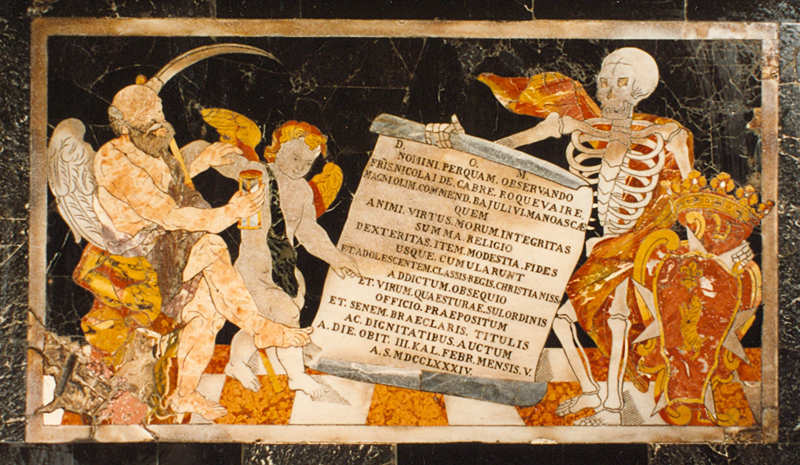 D. O. M
NOMINI. PERQUAM. OBSERVANDO
FRIS. NICOLAI. DE. CABRE. ROQUEVAIRE,
MAGNI OLIM. COMMEND. BAJULIVI. MANOASCÆ
QUEM
ANIMI. VIRTUS. MORUM. INTEGRITAS
SUMMA. RELIGIO
DEXTERITAS. ITEM. MODESTIA, FIDES
USQUE. CUMULARUNT
ET. ADOLESCENTEM. CLASSIS. REGIS, CHRISTIANISS,
ADDICTUM. OBSEQUIO
ET. VIRUM. QUAESTURAE. SUI. ORDINIS
OFFICO. PRAEPOSITUM
ET. SENEM. BRAECLARIS. TITULIS
AC. DIGNITATIBUS. AUCTUM
A. DIE. OBIT. III. KAL. FEBR. MENSIS. V.
A. S. MDCCLXXXIV.